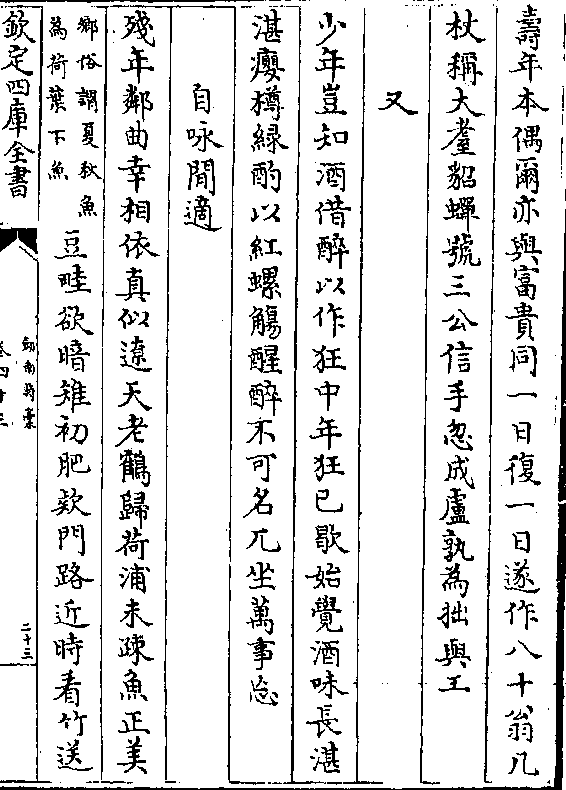 壽年本偶爾亦與富貴同一日復一日遂作八十翁几
杖稱大耋貂蟬號三公信手忽成盧孰為拙與工
又
少年豈知酒借醉以作狂中年狂已歇始覺酒味長湛
湛癭樽緑酌以紅螺觴醒醉不可名兀坐萬事忘
自咏閒適
殘年鄰曲幸相依真似遼天老鶴歸荷浦未疎魚正美
鄉俗謂夏秋魚
為荷葉下魚
豆畦欲暗雉初肥欵門路近時看竹送
欽定四庫全書
劒南詩藁
卷四十三
二十三